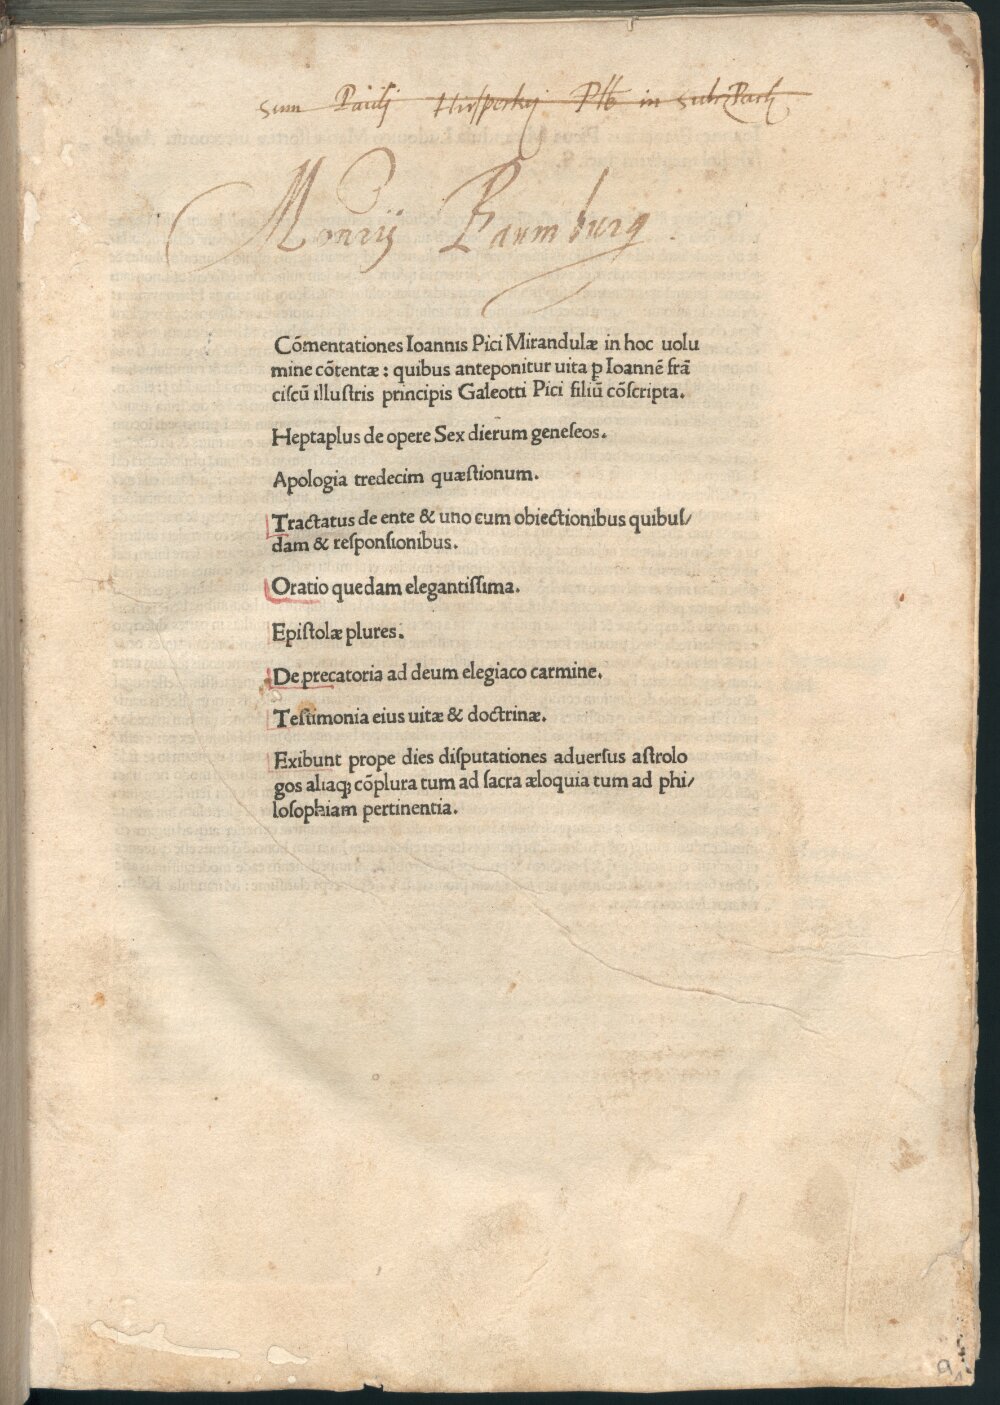 Sum Paulj Hirsperkij Pbb in SulzPach
Monrij Baumburg.
Cōmentationes Ioannis Pici Mirandulæ in hoc uolu
mine cōtentæ: quibus anteponitur uita ꝑ Ioannē frā
ciſcū illuſtris principis Galeotti Pici filiū cōſcripta.
Heptaplus de opere Sex dierum geneſeos.
Apologia tredecim quæſtionum.
Tractatus de ente & uno cum obiectionibus quibuſ/
dam & reſponſionibus.
Oratio quedam elegantiſſima.
Epiſtolæ plures.
De precatoria ad deum elegiaco carmine.
Teſtimonia eius uitæ & doctrinæ.
Exibunt prope dies diſputationes aduerſus aſtrolo
gos aliaq; cōplura tum ad ſacra æloquia tum ad phi/
loſophiam pertinentia.